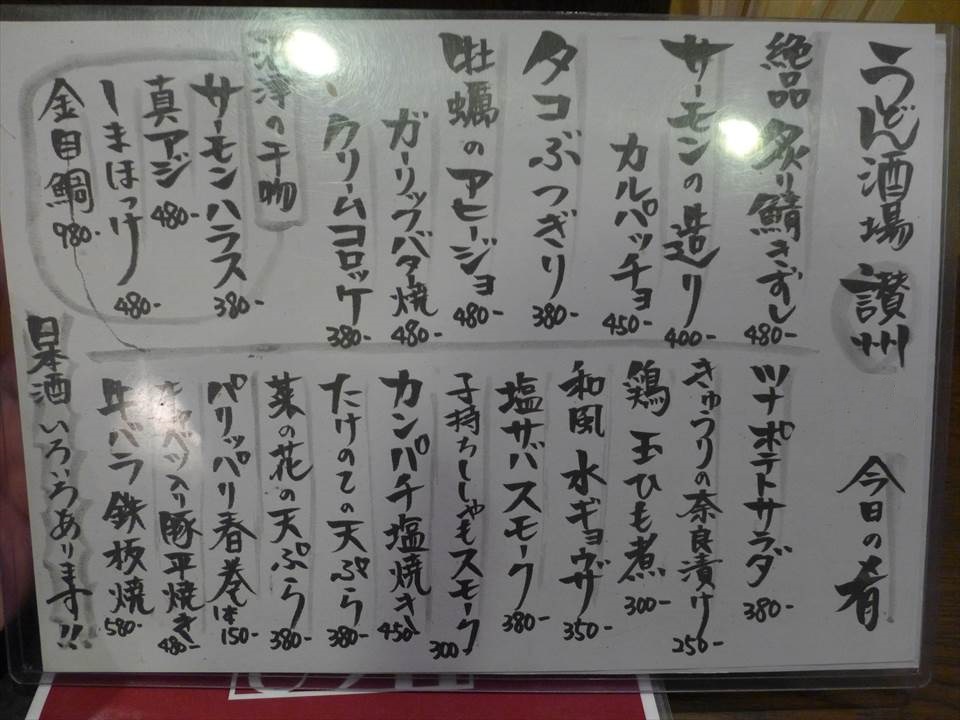 うどん酒場 讃州 今日の肴
絶品 炙り鯖きずし 480-
サーモンの造り 400-
カルパッチョ 450-
タコぶつぎり 380-
牡蠣のアヒージョ 480-
ガーリックバター焼 480-
〃 クリームコロッケ 380-
沼津の干物
サーモンハラス 380-
真アジ 480-
しまほっけ 480-
金目鯛 980-
ツナポテトサラダ 380-
きゅうりの奈良漬け 250-
鶏 玉ひも煮 300-
和風 水ギョウザ 350-
塩サバスモーク 380-
子持ちししゃもスモーク 300-
カンパチ塩焼き 450-
たけのこの天ぷら 380-
菜の花の天ぷら 380-
パリッパリ春巻 1本 150-
キャベツ入り豚平焼き 480-
牛バラ鉄板焼 580-
日本酒いろいろあります!!